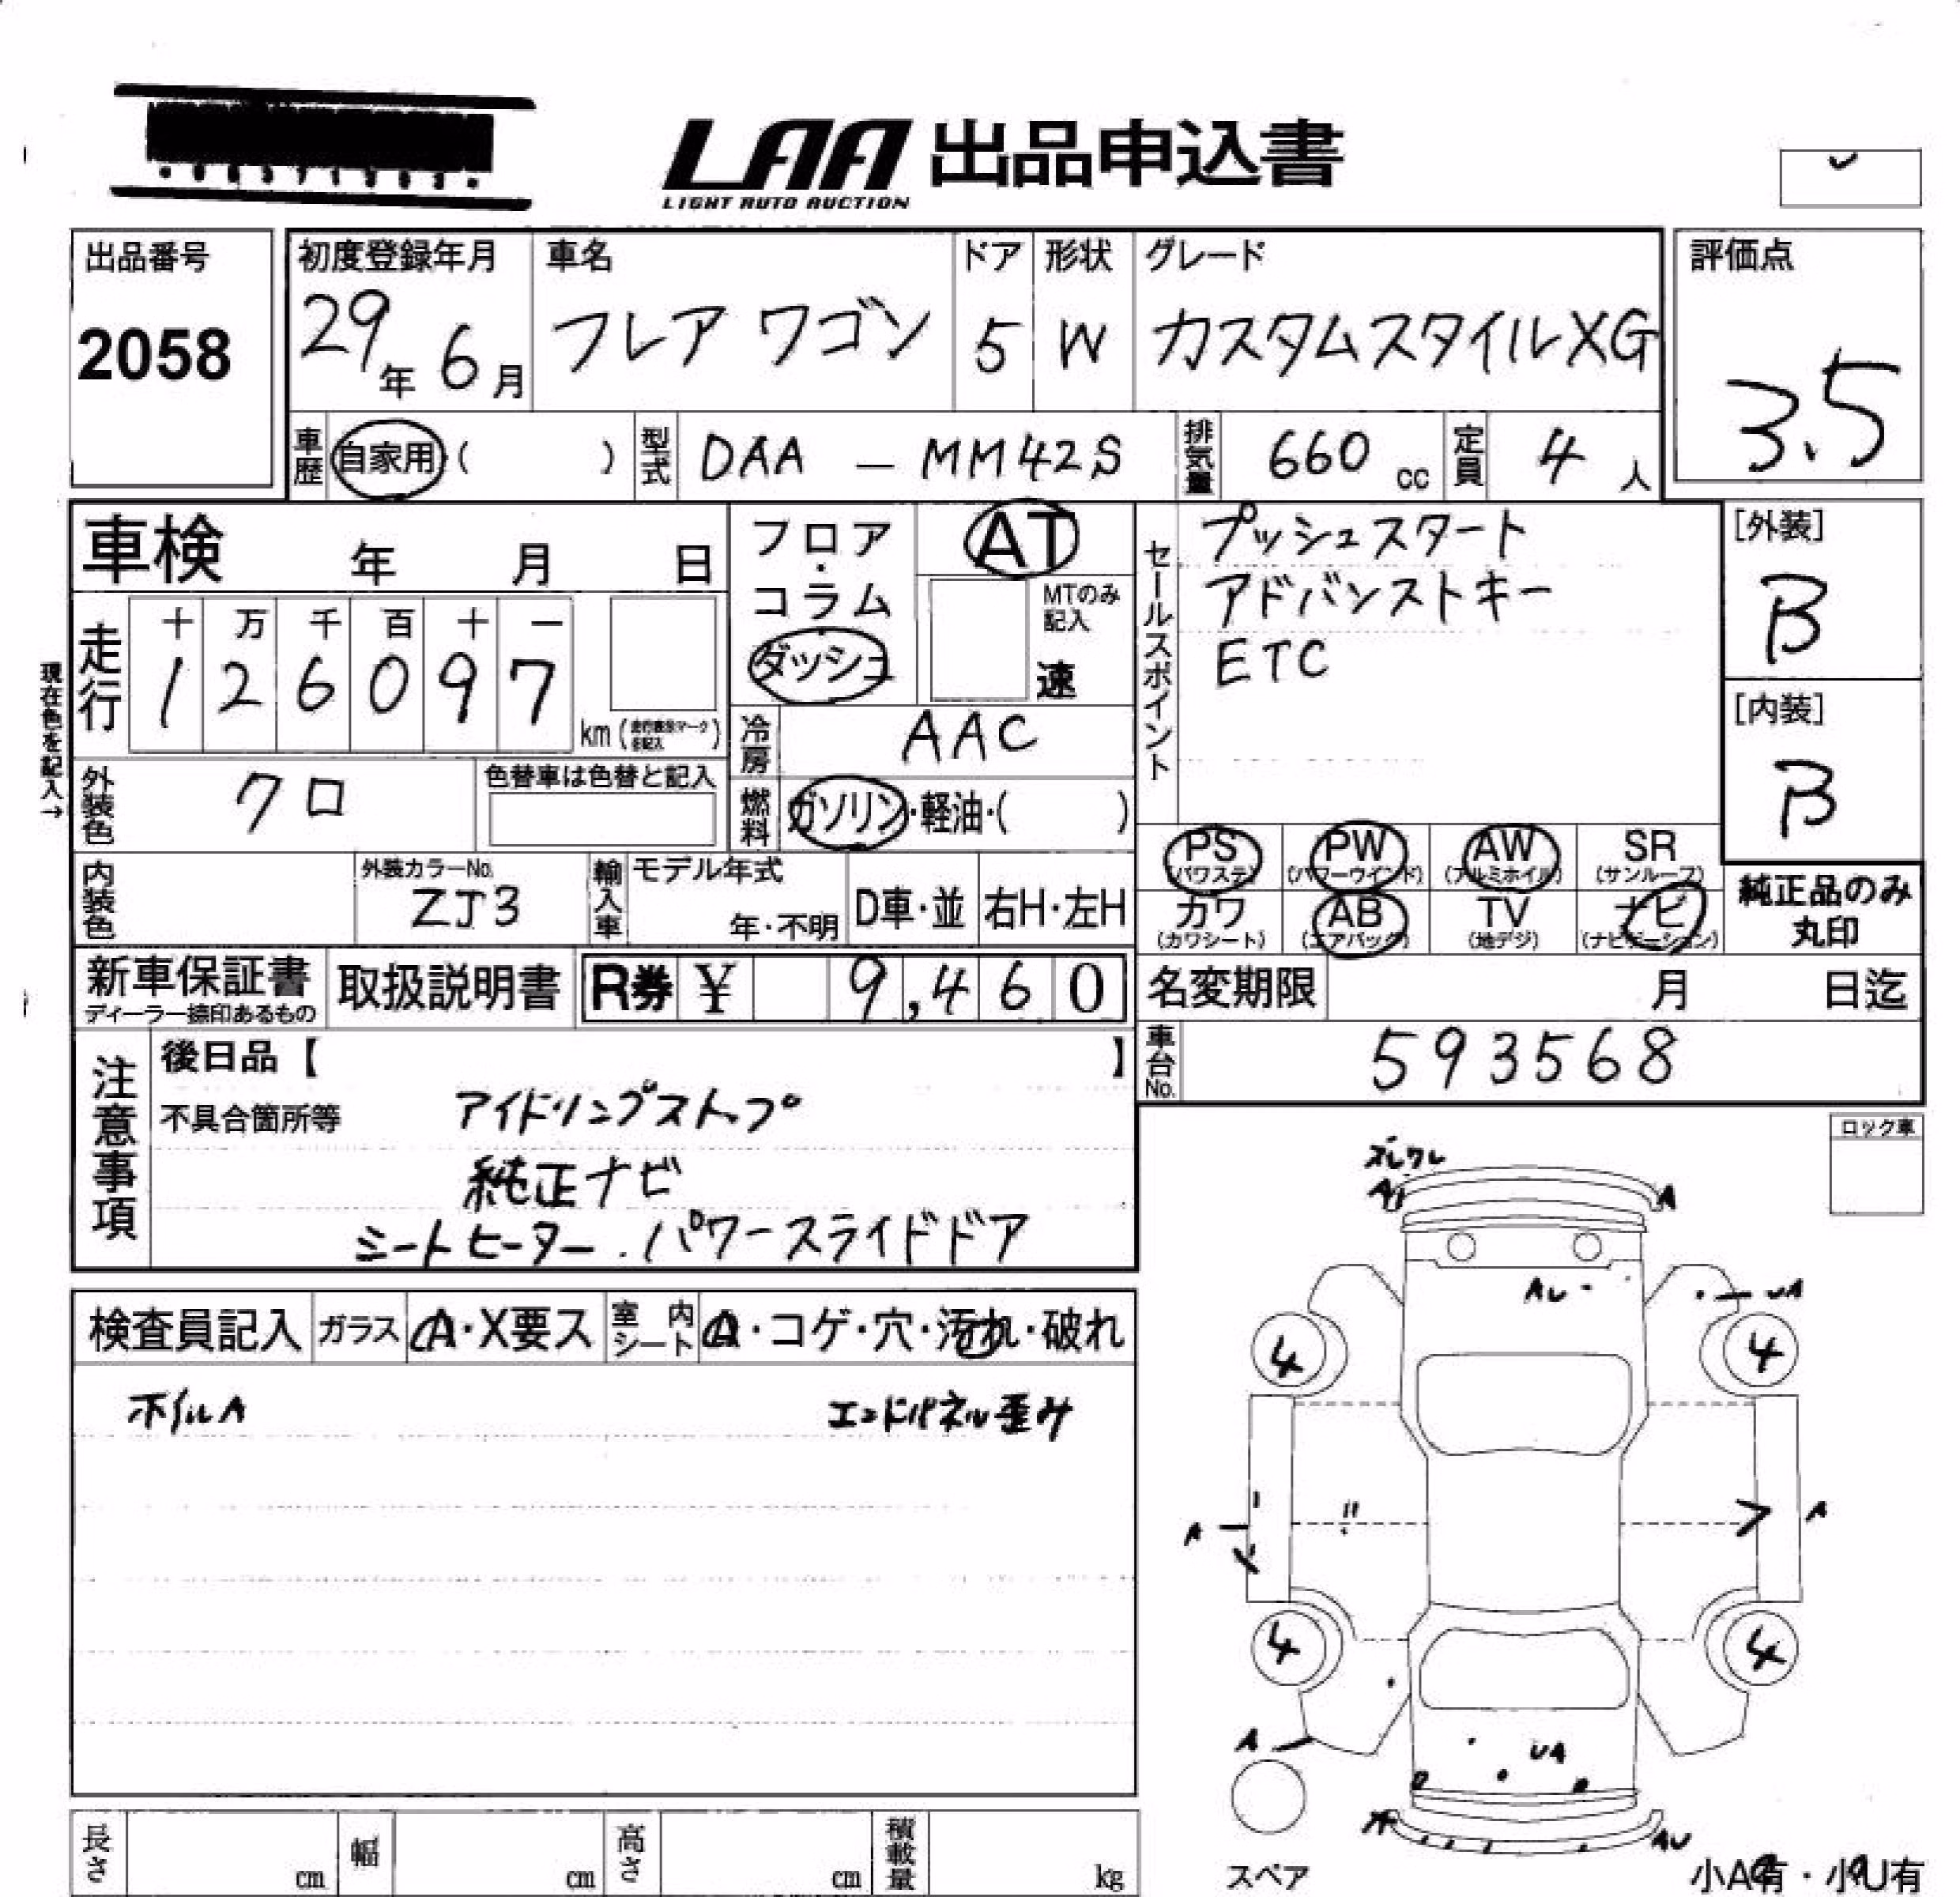 LAA 出品申込書
LIGHT AUTO AUCTION
出品番号
2058
初度登録年月
29年 6月
車名
フレア ワゴン
ドア
5
形状
W
グレード
カスタムスタイルXG
評価点
3.5
車歴 自家用( )
型式 DAA - MM42S
排気量 660 cc
定員 4 人
車検 年 月 日
フロア・
コラム
ダッシュ
AT
MTのみ
記入
速
セールスポイント
プッシュスタート
アドバンストキー
ETC
[外装]
B
[内装]
B
現在色を記入→
走行
十 万 千 百 十 一
1 2 6 0 9 7
km
冷房 AAC
外装色 クロ
色替車は色替と記入
燃料 ガソリン・軽油・( )
PS PW AW SR
(パワステ) (パワーウインド) (アルミホイル) (サンルーフ)
カワ AB TV ナビ
(カワシート) (エアバッグ) (地デジ) (ナビゲーション)
純正品のみ
丸印
内装色
外装カラーNo.
ZJ3
輸入車
モデル年式
年・不明
D車・並
右H・左H
新車保証書
ディーラー捺印あるもの
取扱説明書
R券 ¥ 9,460
名変期限 月 日迄
車台No. 593568
注意事項
後日品【 】
不具合箇所等
アイドリングストップ
純正ナビ
シートヒーター.パワースライドドア
ロック車
検査員記入
ガラス A・X要ス
室内シート A・コゲ・穴・汚れ・破れ
ホイルA
エンドパネル歪み
ズレワレ
A A
AU UA
4 4
A A
4 4
A
UA
AU
スペア
小A有・小U有
長さ cm
幅 cm
高さ cm
積載量 kg